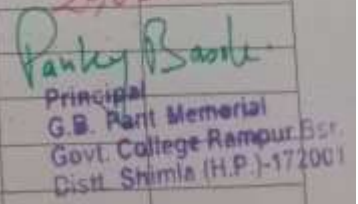 Principal
G.B. Pant Memorial
Govt. College Rampur Bsr.
Distt. Shimla (H.P.)-172001